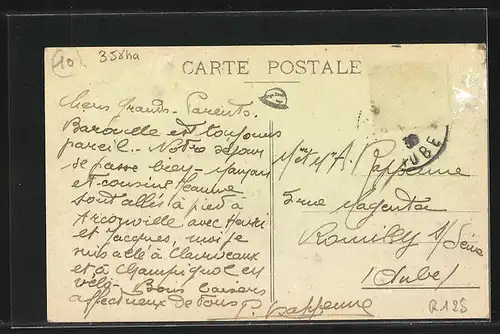 (10)
CARTE POSTALE
30
AUBE
Chers grands-Parents.
Baroville est toujours
pareil. Notre séjour
se passe bien. Maman
et cousine Jeanne
sont allés à pied à
Arconville avec Henri
et Jacques, moi je
suis allé à Clairvaux
et à Champignol en
vélo. Bons baisers
affectueux de tous. P. Pappenne
Mme et Mr A. Pappenne
5 rue Magenta
Romilly s/ Seine
(Aube)
R125